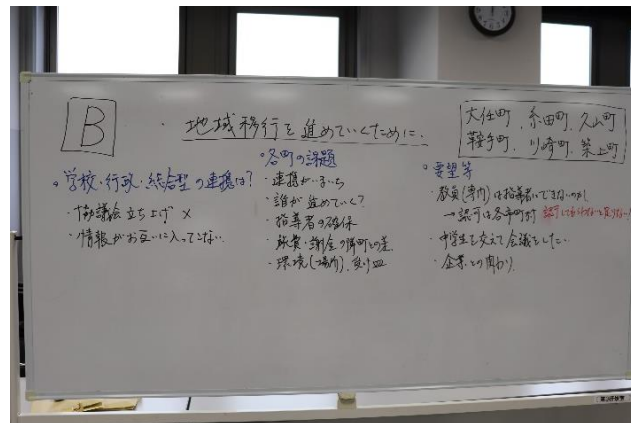 B
・地域移行を進めていくために.
大任町、糸田町、久山町
鞍手町、川崎町、築上町
○学校・行政・総合型の連携は?
・協議会立ち上げ ×
・情報がお互いに入ってこない
○各町の課題
・連携がいまいち
・誰が進めていく?
・指導者の確保
・謝金の隣町との差
・環境(場所)、受け皿
○要望等
・教員(専門)は指導者にできないのか
→認可は各市町村
・中学生を交えて会議をしたい
・企業との関わり